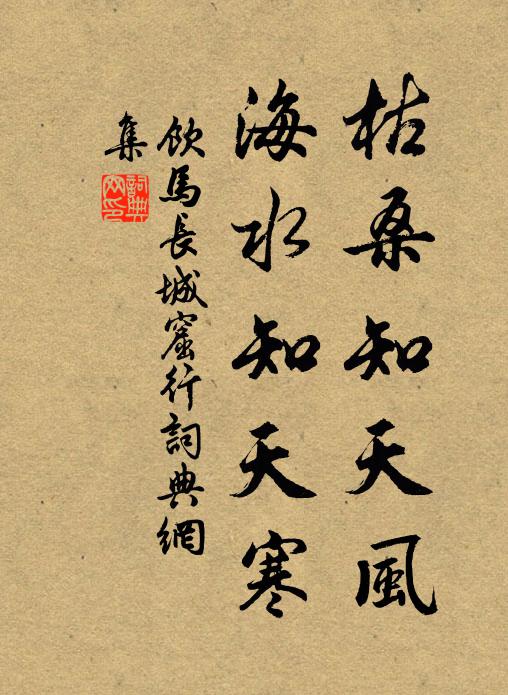 枯桑知天風
海水知天寒
飲馬長城窟行詞典網
集
詞典
网印